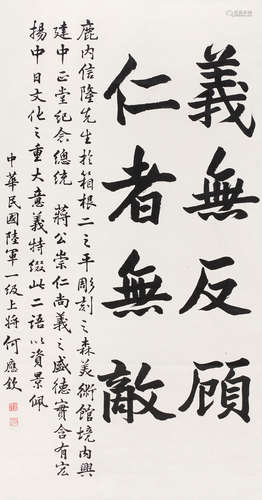 義無反顧
仁者無敵
鹿內信隆先生於箱根二之平彫刻之森美術館境內興
建中正堂紀念總統　蔣公崇仁尚義之盛德實含有宏
揚中日文化之重大意義特綴此二語以資景佩
中華民國陸軍一級上將何應欽